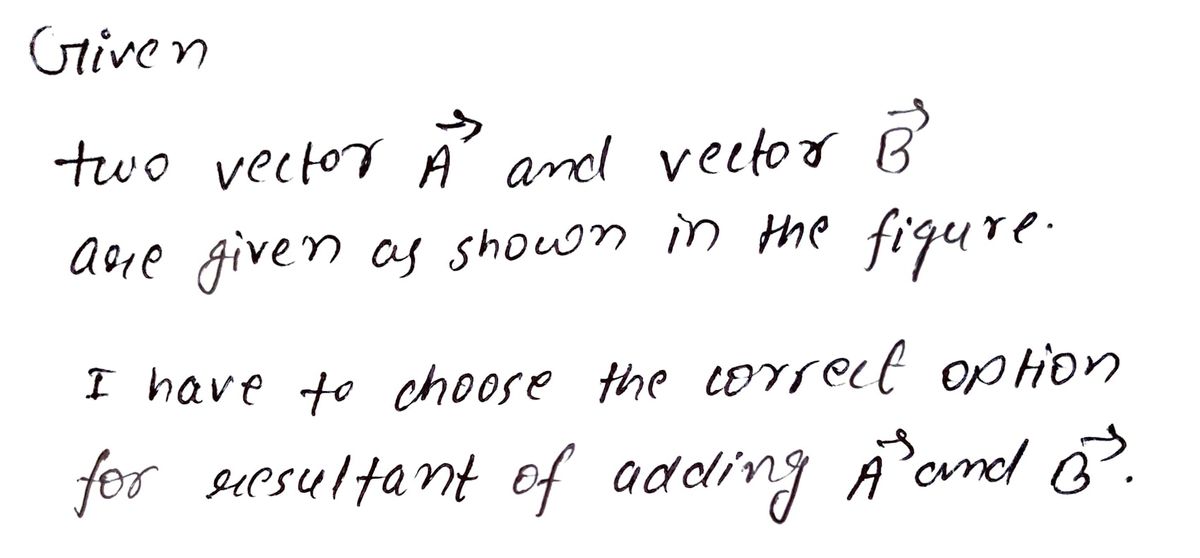 Given
two vector A⃗ and vector B⃗
are given as shown in the figure.
I have to choose the correct option
for resultant of adding A⃗ and B⃗.